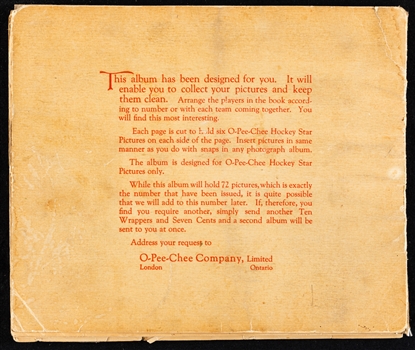 This album has been designed for you. It will
enable you to collect your pictures and keep
them clean. Arrange the players in the book accord-
ing to number or with each team coming together. You
will find this most interesting.
Each page is cut to hold six O-Pee-Chee Hockey Star
Pictures on each side of the page. Insert pictures in same
manner as you do with snaps in any photograph album.
The album is designed for O-Pee-Chee Hockey Star
Pictures only.
While this album will hold 72 pictures, which is exactly
the number that have been issued, it is quite possible
that we will add to this number later. If, therefore, you
find you require another, simply send another Ten
Wrappers and Seven Cents and a second album will be
sent to you at once.
Address your request to
O-Pee-Chee Company, Limited
London Ontario